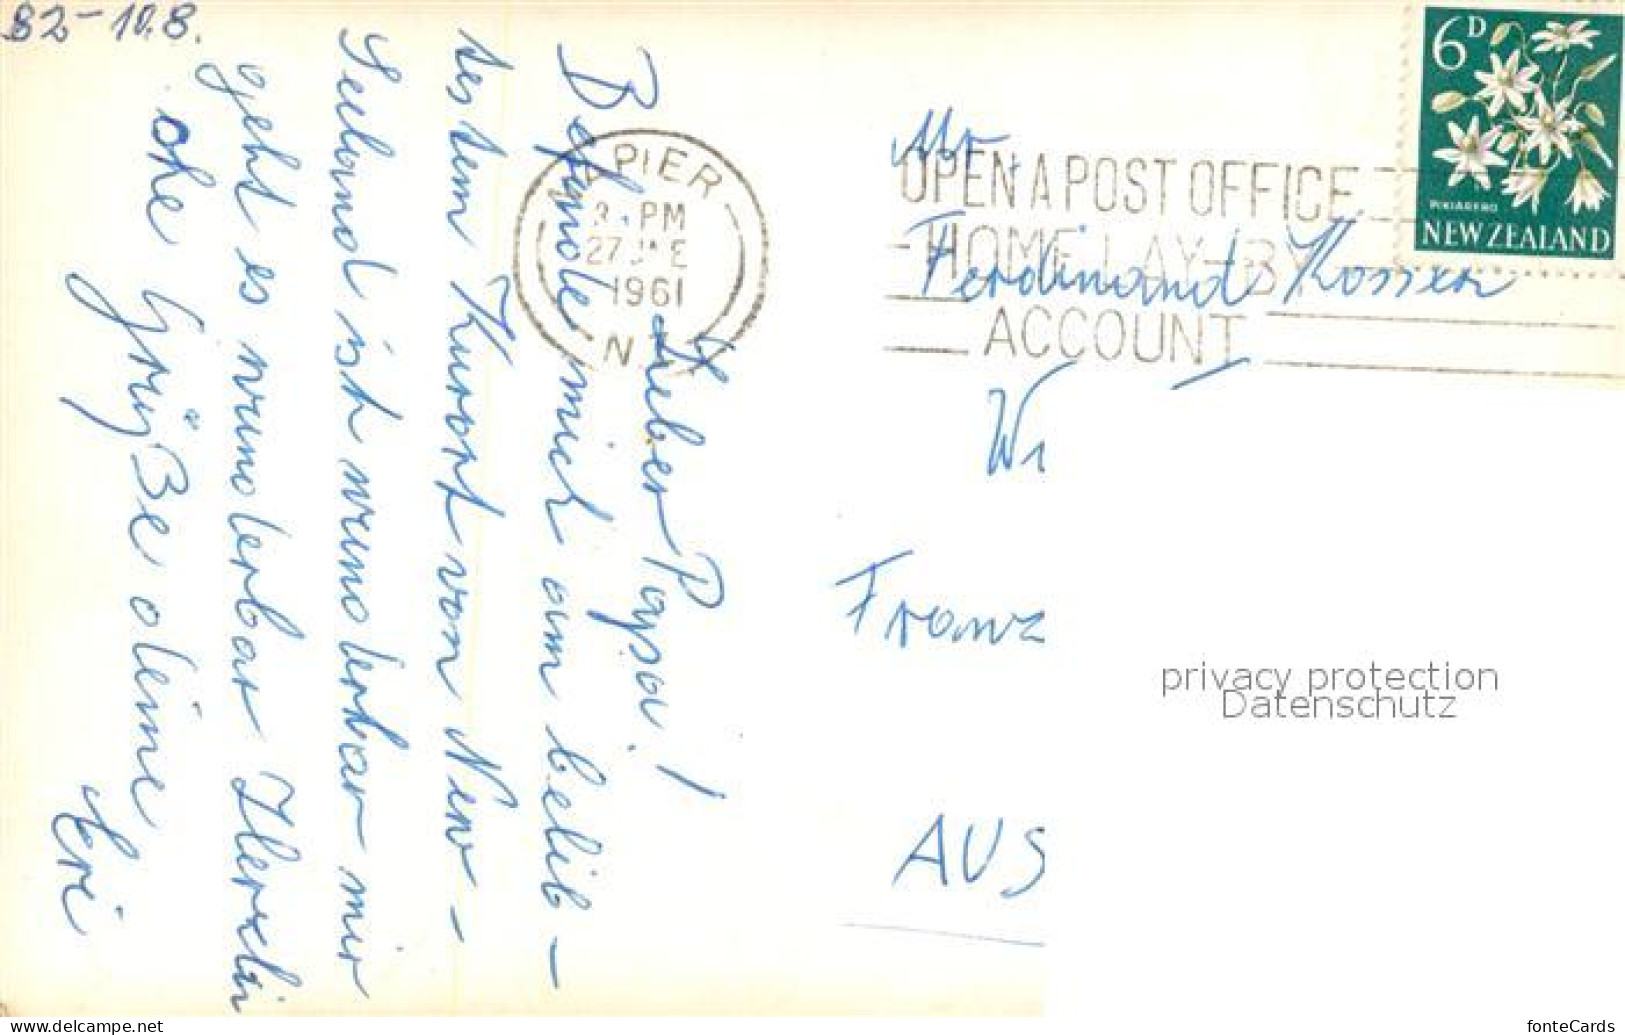 B2-10.8.
Lieber Papa!
Befinde mich am belieb-
testem Kurort von New-
Seeland ist wunderbar mir
geht es wunderbar Herzli
che Grüße deine
Eri
NAPIER
PM
27 JNE
1961
N.Z.
OPEN A POST OFFICE
HOME LAY-BY
ACCOUNT
6D
PIKIARERO
NEW ZEALAND
Mr.
Ferdinand
Wi
Franz
AUS
privacy protection
Datenschutz
www.delcampe.net
fonteCards